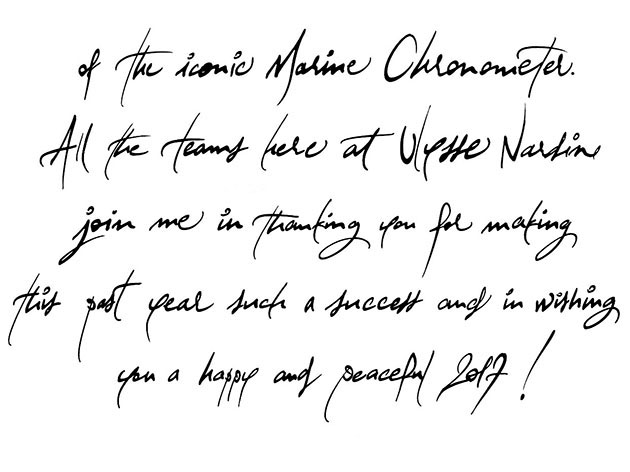 of the iconic Marine Chronometer.
All the teams here at Ulysse Nardin
join me in thanking you for making
this past year such a success and in wishing
you a happy and peaceful 2017 !